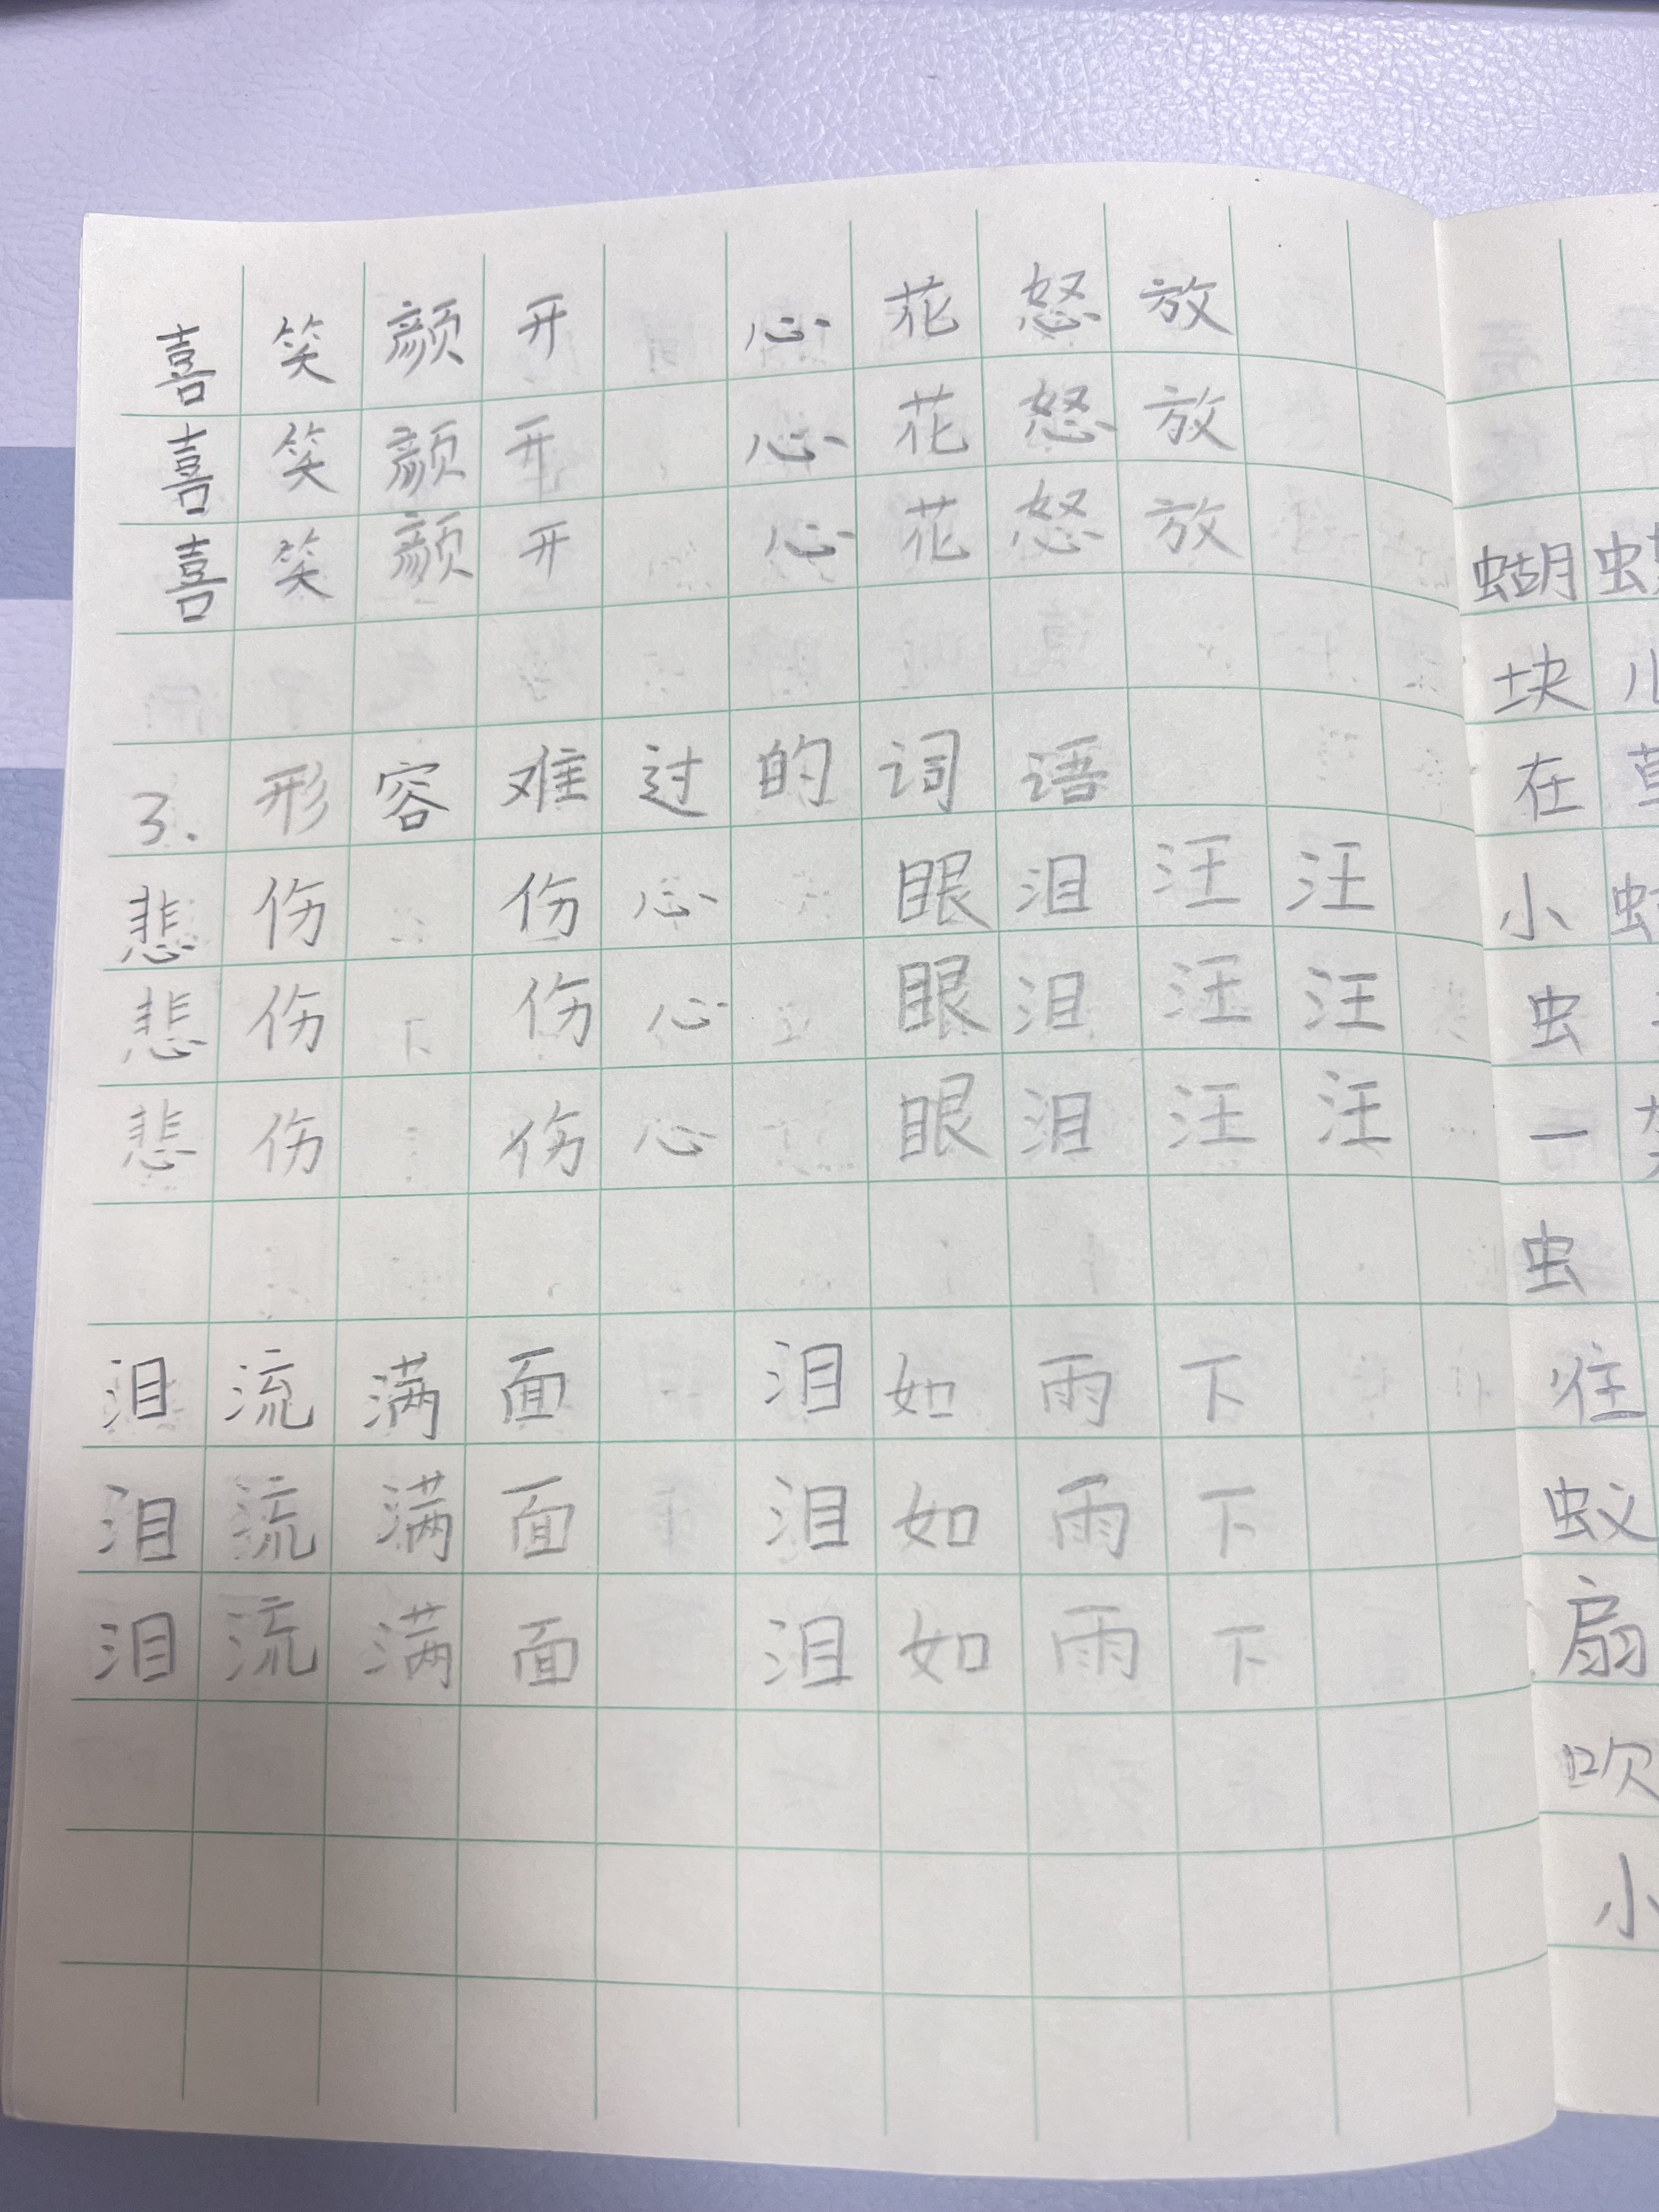 喜笑颜开 心花怒放
喜笑颜开 心花怒放
喜笑颜开 心花怒放
3.形容难过的词语
悲伤 伤心 眼泪汪汪
悲伤 伤心 眼泪汪汪
悲伤 伤心 眼泪汪汪
泪流满面 泪如雨下
泪流满面 泪如雨下
泪流满面 泪如雨下
蝴
块
在
小
虫
一
虫
往
蚊
扇
吹
小